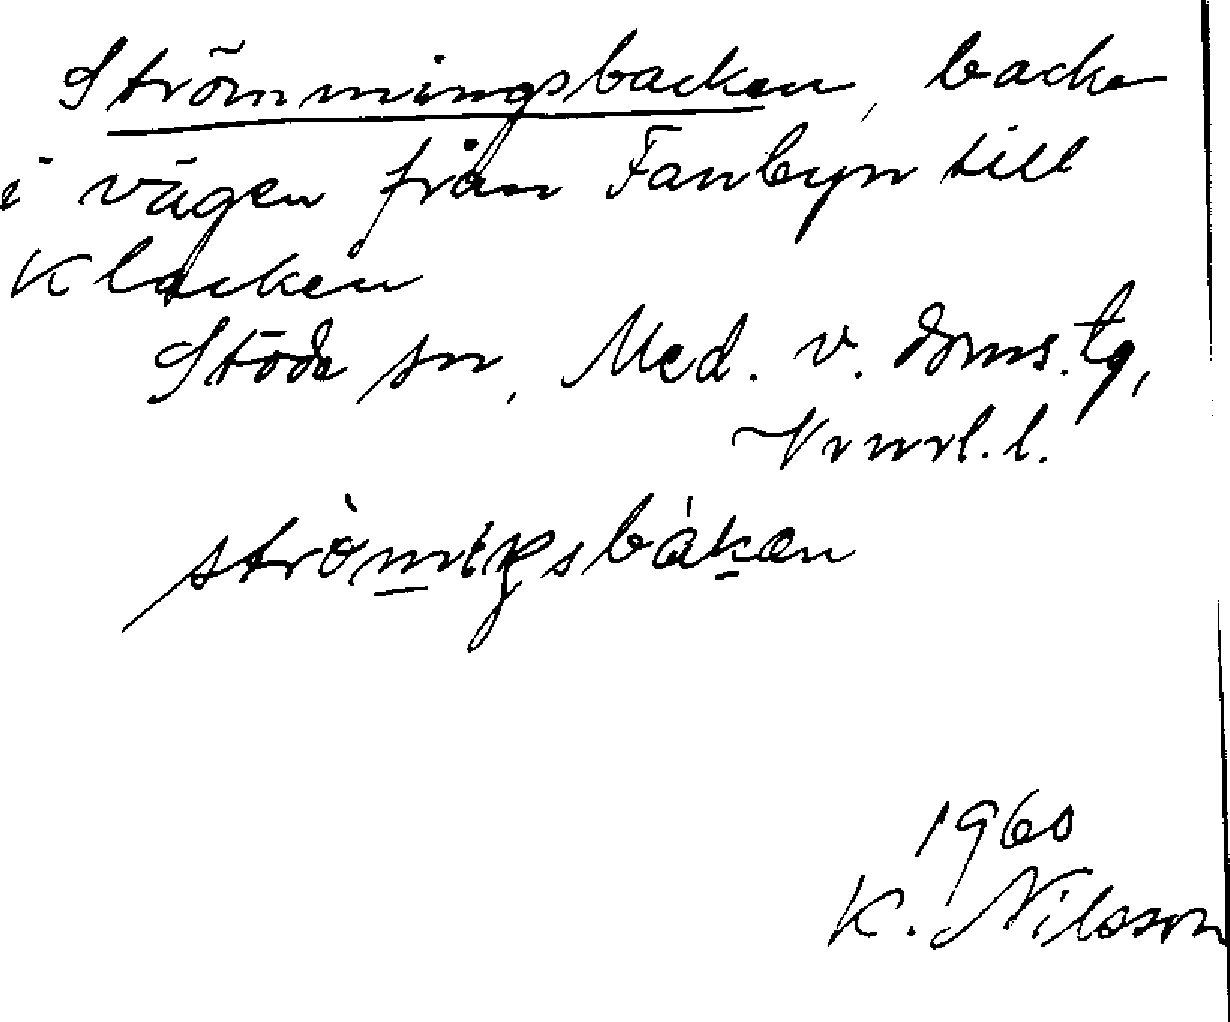 Strömmingsbacken, backe
i vägen från Fanbyn till
Klacken
Stöde sn, Med. v. doms. tg,
Vrnrl. l.
strö̀miŋsbákæn
1960
K. Nilsson